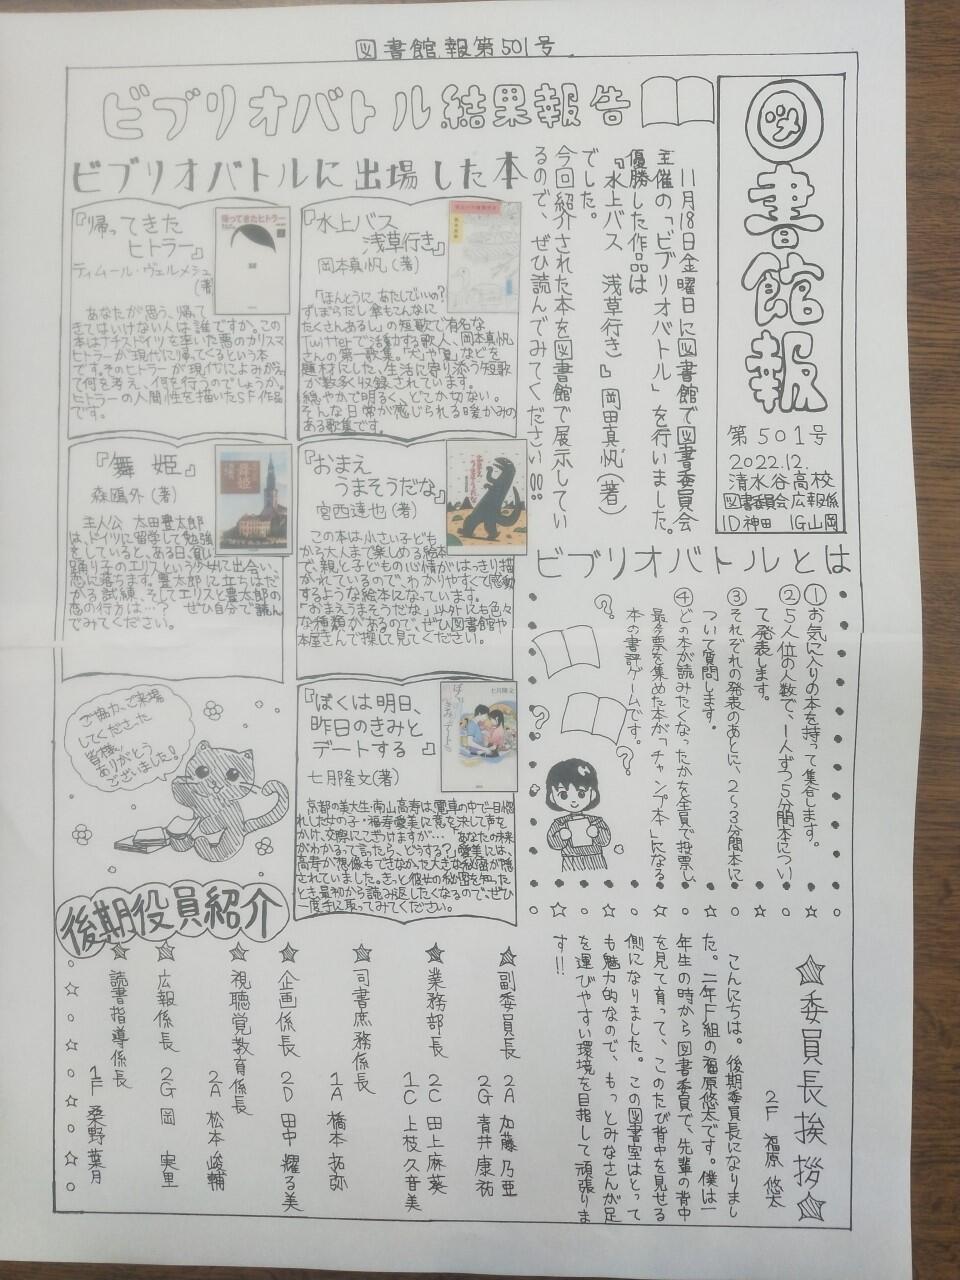 図書館報第501号
図書館報
第501号
2022.12.
清水谷高校
図書委員会広報係
1D神田 1G山岡
ビブリオバトル結果報告
11月18日金曜日に図書館で図書委員会
主催の「ビブリオバトル」を行いました。
優勝した作品は
『水上バス 浅草行き』岡田真帆(著)
でした。
今回紹介された本を図書館で展示してい
るので、ぜひ読んでみてください!!!
ビブリオバトルに出場した本
『水上バス
浅草行き』
岡本真帆(著)
「ほんとうに あたしでいいの?
ずぼらだし 傘もこんなに
たくさんあるし」の短歌で有名な
Twitterで活動する歌人、岡本真帆
さんの第一歌集。「犬」や「夏」などを
題材にした、生活に寄り添う短歌
が数多く収録されています。
穏やかで明るく、どこか切ない。
そんな日常が感じられる暖かみの
ある歌集です。
『帰ってきた
ヒトラー』
ティムール・ヴェルメシュ
(著)
帰ってきたヒトラー
あなたが思う、帰って
きてはいけない人は誰ですか。この
本はナチスドイツを率いた悪のカリスマ
ヒトラーが現代に帰ってくるという本
です。そのヒトラーが現代によみがえっ
て何を考え、何を行うのでしょうか。
ヒトラーの人間性を描いたSF作品
です。
『おまえ
うまそうだな』
宮西達也(著)
この本は小さい子ども
から大人まで楽しめる絵本
で、親と子どもの心情がはっきり描
かれているので、わかりやすくて感動
するような絵本になっています。
「おまえうまそうだな」以外にも色々
な種類があるので、ぜひ図書館や
本屋さんで探して見てください。
『舞 姫』
森鴎外(著)
舞姫
主人公 太田豊太郎
は、ドイツに留学して勉強
をしていると、ある日、貧しい
踊り子のエリスという少女に出会い、
恋に落ちます。豊太郎に立ちはだ
かる試練、そしてエリスと豊太郎の
恋の行方は…? ぜひ自分で読ん
でみてください。
『ぼくは明日、
昨日のきみと
デートする』
七月隆文(著)
七月隆文
京都の美大生・南山高寿は電車の中で一目惚
れした女の子・福寿愛美に意を決して声を
かけ、交際にこぎつけますが…「あなたの未来
がわかるって言ったら、どうする?」愛美には、
高寿が想像もできなかった大きな秘密が隠
されていました。きっと彼女の秘密を知った
とき最初から読み返したくなるので、ぜひ
一度手に取ってみてください。
ビブリオバトルとは
①お気に入りの本を持って集合します。
②5人位の人数で、1人ずつ5分間本につい
て発表します。
③それぞれの発表のあとに、2~3分間本に
ついて質問します。
④どの本が読みたくなったかを全員で投票し、
最多票を集めた本が「チャンプ本」になる
本の書評ゲームです。
ご協力、ご来場
してくださった
皆様、
ありがとう
ございました!
☆委員長挨拶☆
2F 福原 悠太
こんにちは。後期委員長になりまし
た。二年F組の福原悠太です。僕は一
年生の時から図書委員で、先輩の背中
を見て育って、このたび背中を見せる
側になりました。この図書室はとって
も魅力的なので、もっとみなさんが足
を運びやすい環境を目指して頑張りま
す!!
後期役員紹介
☆副委員長 2A 加藤 乃亜
2G 青井 康祐
☆業務部長 2C 田上 麻葵
1C 上枝 久音美
☆司書庶務係長
1A 橋本 拓弥
☆企画係長 2D 田中 耀る美
☆視聴覚教育係長
2A 松本 峻輔
☆広報係長 2G 岡 実里
☆読書指導係長
1F 桑野 葉月